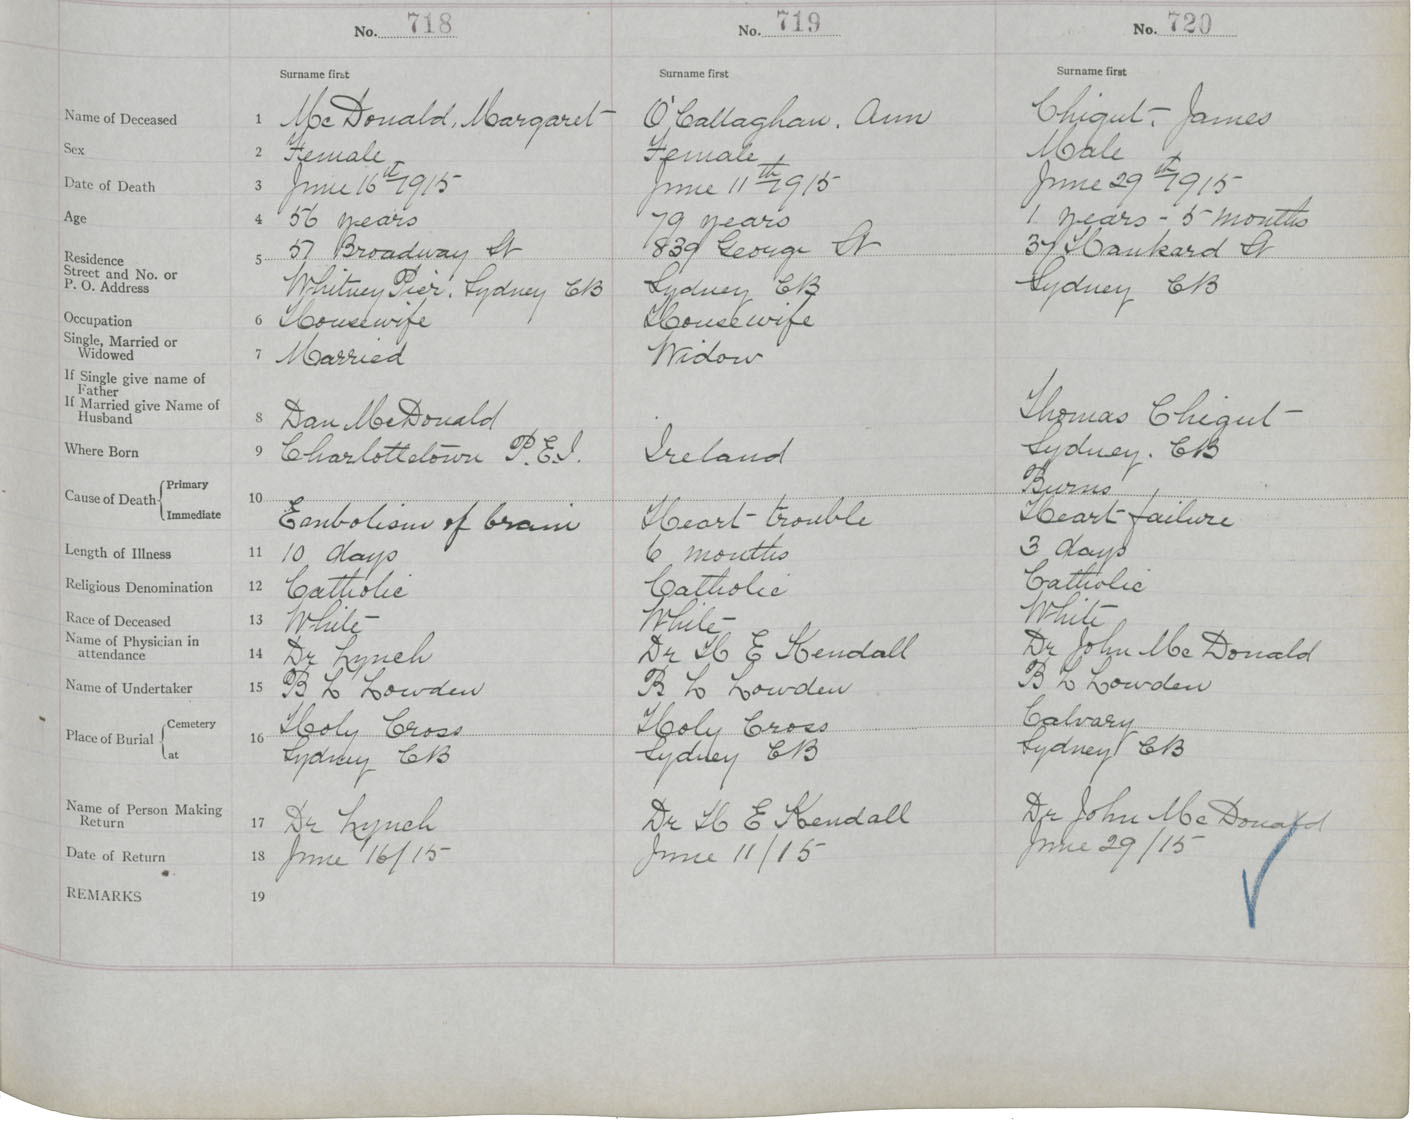 No. 718 No. 719 No. 720
Surname first Surname first Surname first
Name of Deceased 1 McDonald, Margaret O'Callaghan, Ann Chigut, James
Sex 2 Female Female Male
Date of Death 3 June 16th 1915 June 11th 1915 June 29th 1915
Age 4 56 years 79 years 1 years - 5 months
Residence 5 57 Broadway St 839 George St 37 Hankard St
Street and No. or
P. O. Address Whitney Pier, Sydney CB Sydney CB Sydney CB
Occupation 6 Housewife Housewife
Single, Married or
Widowed 7 Married Widow
If Single give name of
Father
If Married give Name of
Husband 8 Dan McDonald Thomas Chigut
Where Born 9 Charlottetown P.E.I. Ireland Sydney. CB
Cause of Death Primary 10 Burns
Immediate Eenbolism of brain Heart trouble Heart failure
Length of Illness 11 10 days 6 months 3 days
Religious Denomination 12 Catholic Catholic Catholic
Race of Deceased 13 White White White
Name of Physician in
attendance 14 Dr Lynch Dr H E Kendall Dr John McDonald
Name of Undertaker 15 B L Lowden B L Lowden B L Lowden
Place of Burial Cemetery 16 Holy Cross Holy Cross Calvary
at Sydney CB Sydney CB Sydney CB
Name of Person Making
Return 17 Dr Lynch Dr H E Kendall Dr John McDonald
Date of Return 18 June 16/15 June 11/15 June 29/15
REMARKS 19